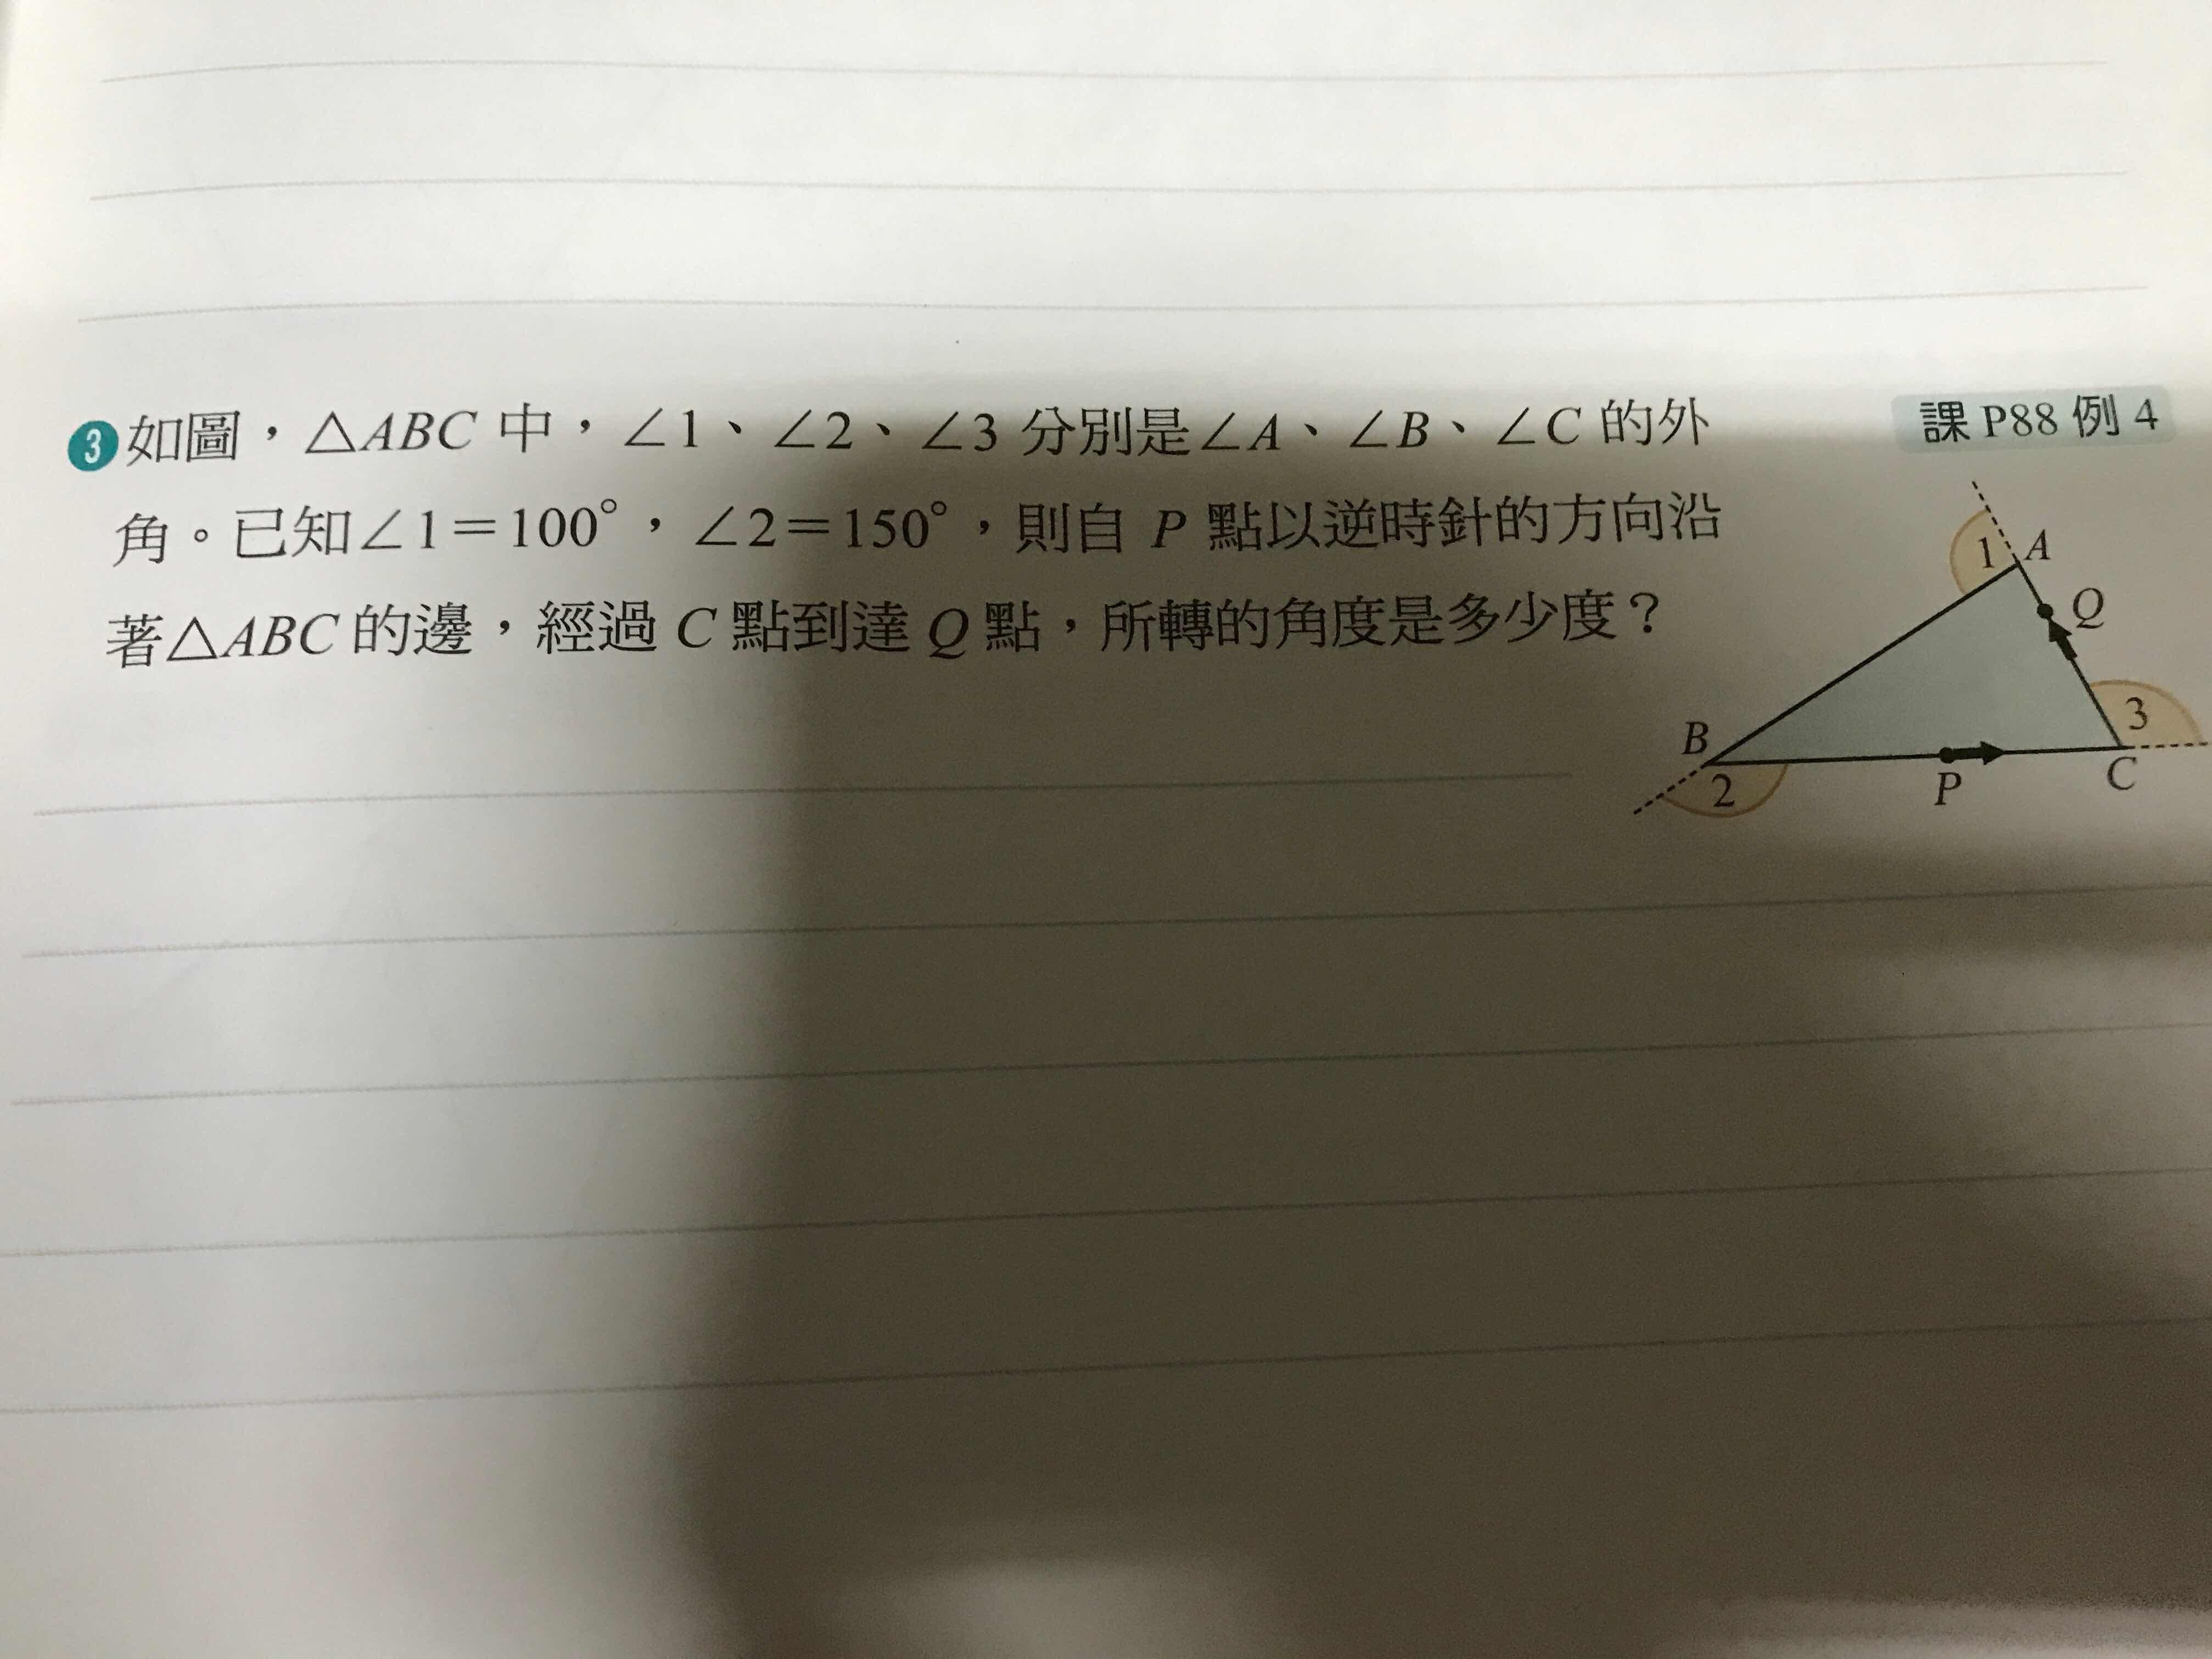 課 P88 例 4
3 如圖，△ABC 中，∠1、∠2、∠3 分別是∠A、∠B、∠C 的外
角。已知∠1＝100°，∠2＝150°，則自 P 點以逆時針的方向沿
著△ABC 的邊，經過 C 點到達 Q 點，所轉的角度是多少度？
1 A
Q
3
B
2
P
C